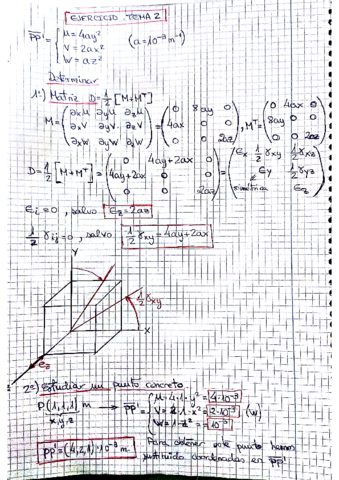 EJERCICIO TEMA 2
PP' = { μ = 4ay²
V = 2ax²
W = az²
(a = 10⁻³ m⁻¹)
Determinar
1º) Matriz D = 1/2 [M+Mᵀ]
M = (∂xμ ∂yμ ∂zμ
∂xV ∂yV ∂zV
∂xW ∂yW ∂zW) = (0 8ay 0
4ax 0 0
0 0 2az), Mᵀ = (0 4ax 0
8ay 0 0
0 0 2az)
D = 1/2 [M+Mᵀ] = (0 4ay+2ax 0
4ay+2ax 0 0
0 0 2az) = (Ex 1/2 γxy 1/2 γxz
Ey 1/2 γyz
simétrica Ez)
Ei = 0, salvo Ez = 2az
1/2 γij = 0, salvo 1/2 γxy = 4ay+2ax
Y
1/2 γxy
X
ez
2º) Estudiar un punto concreto
P(1,1,1) m → PP' = { μ = 4·1·y² = 4·10⁻³
x,y,z
V = 2·1·x² = 2·10⁻³ (m)
W = 1·z² = 10⁻³
PP' = (4,2,1)·10⁻³ m
Para obtener este punto hemos
sustituido coordenadas en PP'